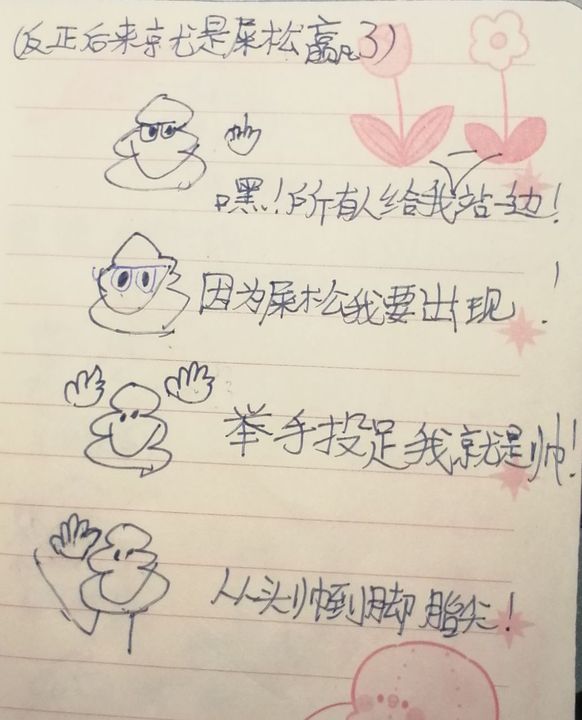 (反正后来就是屎松赢了)
嘿!所有人给我站一边!
因为屎松我要出现!
举手投足我就是帅!
从头帅到脚脂尖!